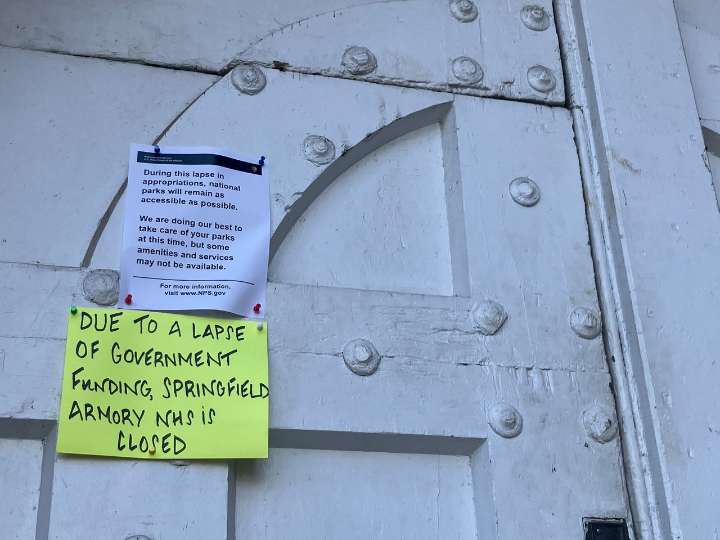 During this lapse in
appropriations, national
parks will remain as
accessible as possible.
We are doing our best to
take care of your parks
at this time, but some
amenities and services
may not be available.
For more information,
visit www.NPS.gov
DUE TO A LAPSE
OF GOVERNMENT
FUNDING, SPRINGFIELD
ARMORY NHS IS
CLOSED